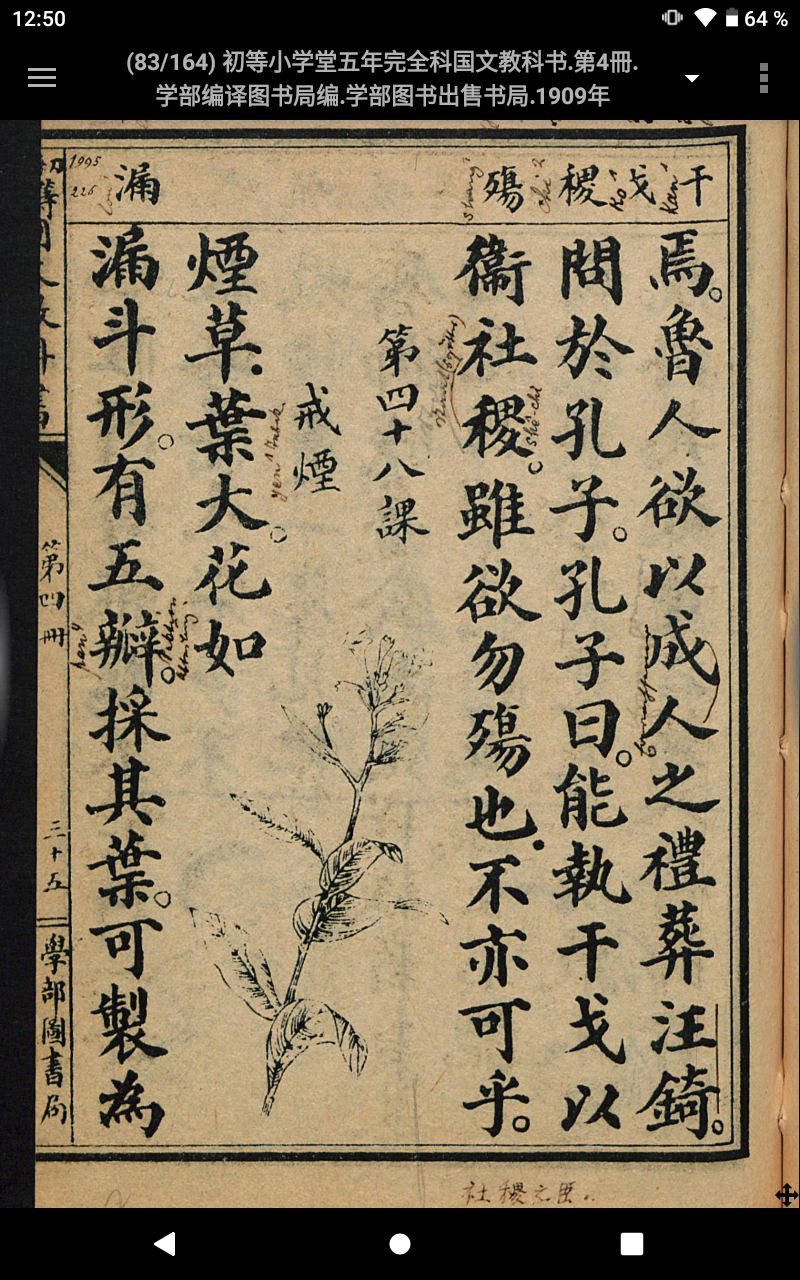 12:50
64 %
(83/164) 初等小学堂五年完全科国文教科书.第4冊.
学部编译图书局编.学部图书出售书局.1909年
干 戈 稷 殤
焉。魯人欲以成人之禮葬汪錡。
問於孔子。孔子曰。能執干戈以
衞社稷。雖欲勿殤也.不亦可乎。
第四十八課
戒煙
煙草.葉大。花如
漏
漏斗形。有五瓣。採其葉。可製為
第四冊
三十五
學部圖書局
1995
226
社稷之臣.